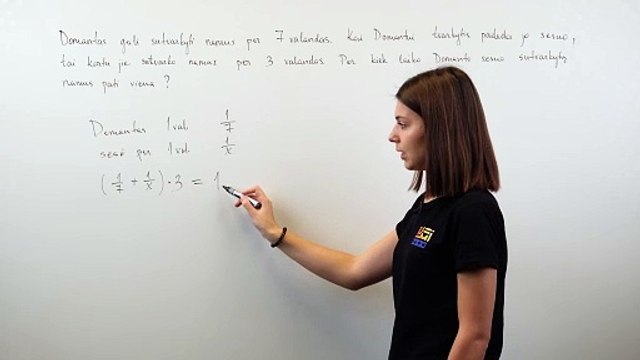 Domantas gali sutvarkyti namus per 7 valandas. Kai Domantui tvarkytis padeda jo sesuo,
tai kartu jie sutvarko namus per 3 valandas. Per kiek laiko Domanto sesuo sutvarkytų
namus pati viena?
Domantas 1 val. 1/7
sesė per 1 val 1/x
(1/7 + 1/x) · 3 = 1